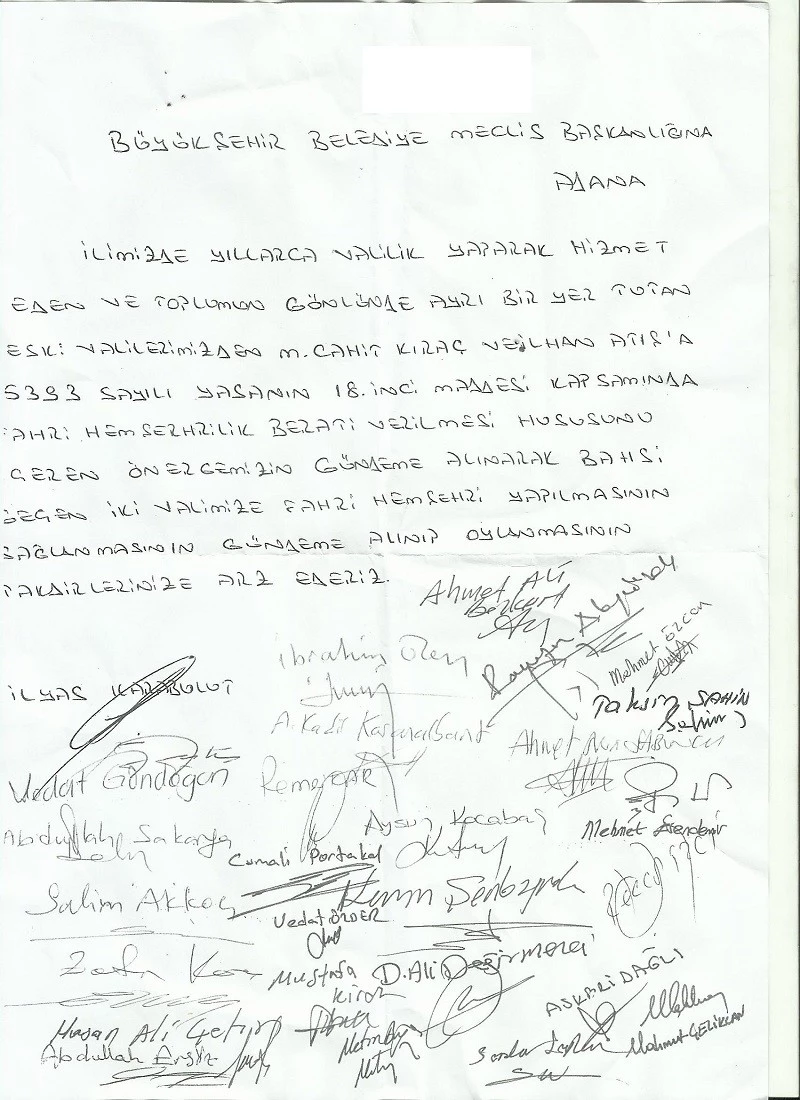 BÜYÜKŞEHİR BELEDİYE MECLİS BAŞKANLIĞINA
ADANA
İLİMİZDE YILLARCA VALİLİK YAPARAK HİZMET
EDEN VE TOPLUMUN GÖNLÜNDE AYRI BİR YER TUTAN
ESKİ VALİLERİMİZDEN M. CAHİT KIRAÇ VE İLHAN ATIŞ'A
5393 SAYILI YASANIN 18.İNCİ MADDESİ KAPSAMINDA
AHRİ HEMŞERHRİLİK BERATI VERİLMESİ HUSUSUNU
İÇEREN ÖNERGEMİZİN GÜNDEME ALINARAK BAHSİ
GEÇEN İKİ VALİMİZE FAHRİ HEMŞEHRİ YAPILMASININ
SAĞLANMASININ GÜNDEME ALINIP OYLANMASININ
TAKDİRLERİNİZE ARZ EDERİZ.
Ahmet Ali
Bozkurt
İbrahim Özen
Mahmet ÖZCAN
İLYAS KARABULUT
Taksin ŞAHİN
A.Kadir
Ahmet
Vedat Gündoğan
Aysun Kocabaş
Mehmet
Abdullah Sakarya
Cumali Portakal
Salim Akkoç
Kerim
Vedat ÖZDER
Zafer Koç
Mustafa
Kiroz
D.Ali Değirmenci
ASKARİ DAĞLI
Hasan Ali Çetin
Metin
Serdar
Mahmut ÇELİKCAN
Abdullah